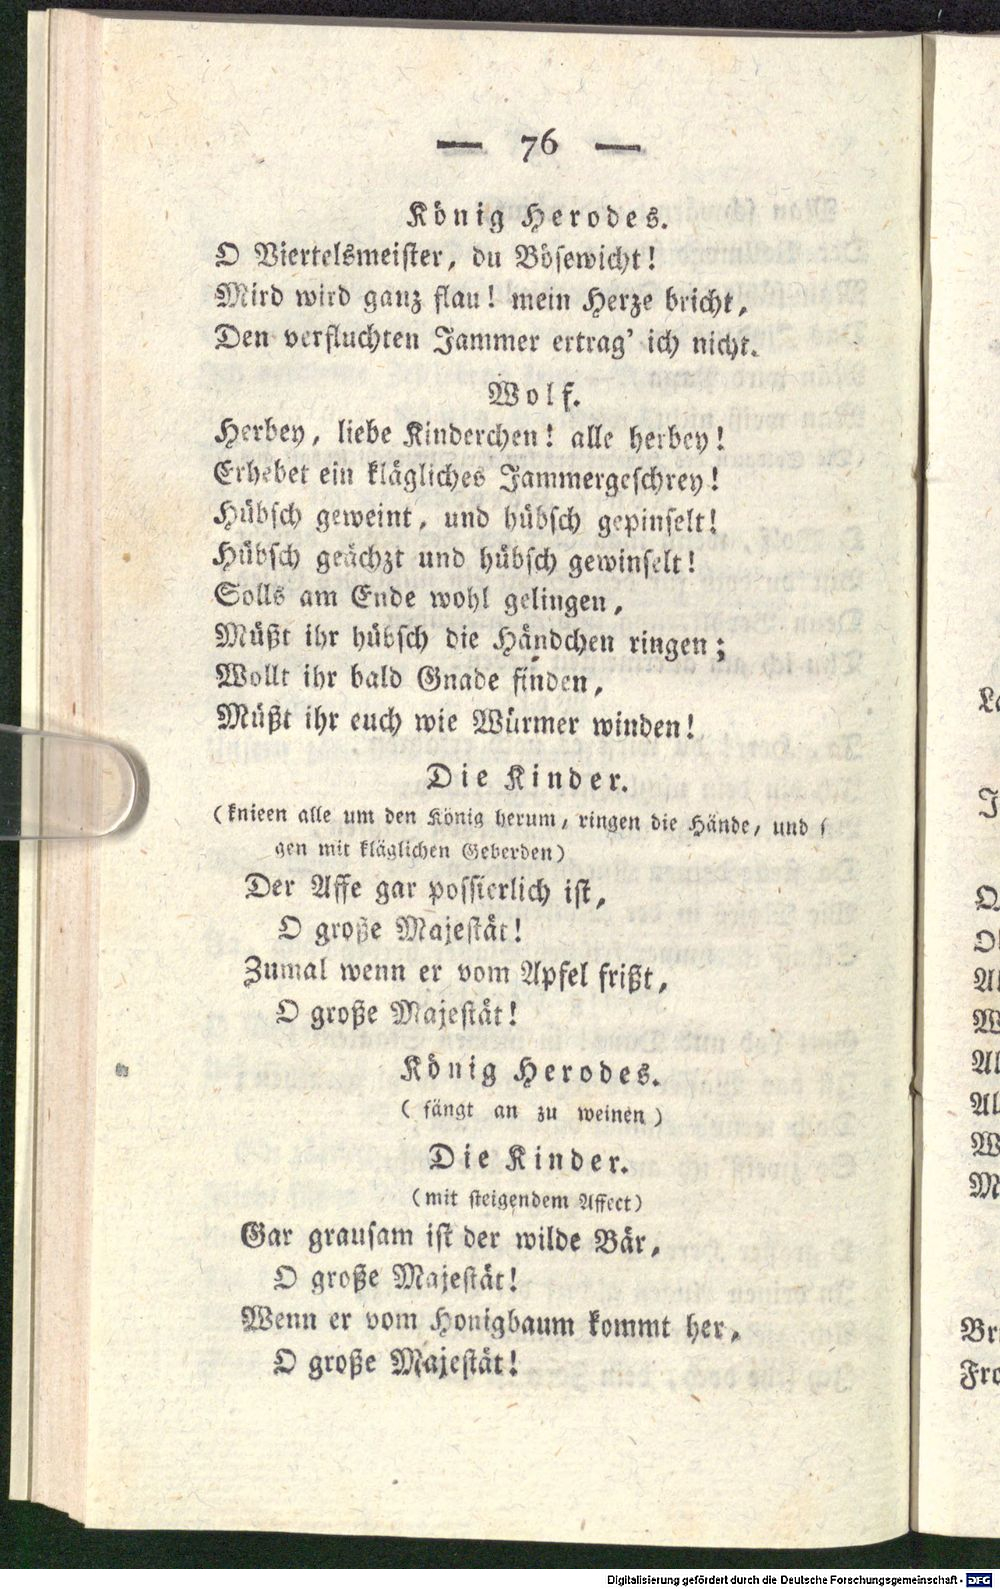 — 76 —
König Herodes.
O Viertelsmeister, du Bösewicht!
Mird wird ganz flau! mein Herze bricht,
Den verfluchten Jammer ertrag' ich nicht.
Wolf.
Herbey, liebe Kinderchen! alle herbey!
Erhebet ein klägliches Jammergeschrey!
Hübsch geweint, und hübsch gepinselt!
Hübsch geächzt und hübsch gewinselt!
Solls am Ende wohl gelingen,
Müßt ihr hübsch die Händchen ringen;
Wollt ihr bald Gnade finden,
Müßt ihr euch wie Würmer winden!
Die Kinder.
(knieen alle um den König herum, ringen die Hände, und
gen mit kläglichen Geberden)
Der Affe gar possierlich ist,
O große Majestät!
Zumal wenn er vom Apfel frißt,
O große Majestät!
König Herodes.
(fängt an zu weinen)
Die Kinder.
(mit steigendem Affect)
Gar grausam ist der wilde Bär,
O große Majestät!
Wenn er vom Honigbaum kommt her,
O große Majestät!
Digitalisierung gefördert durch die Deutsche Forschungsgemeinschaft - DFG